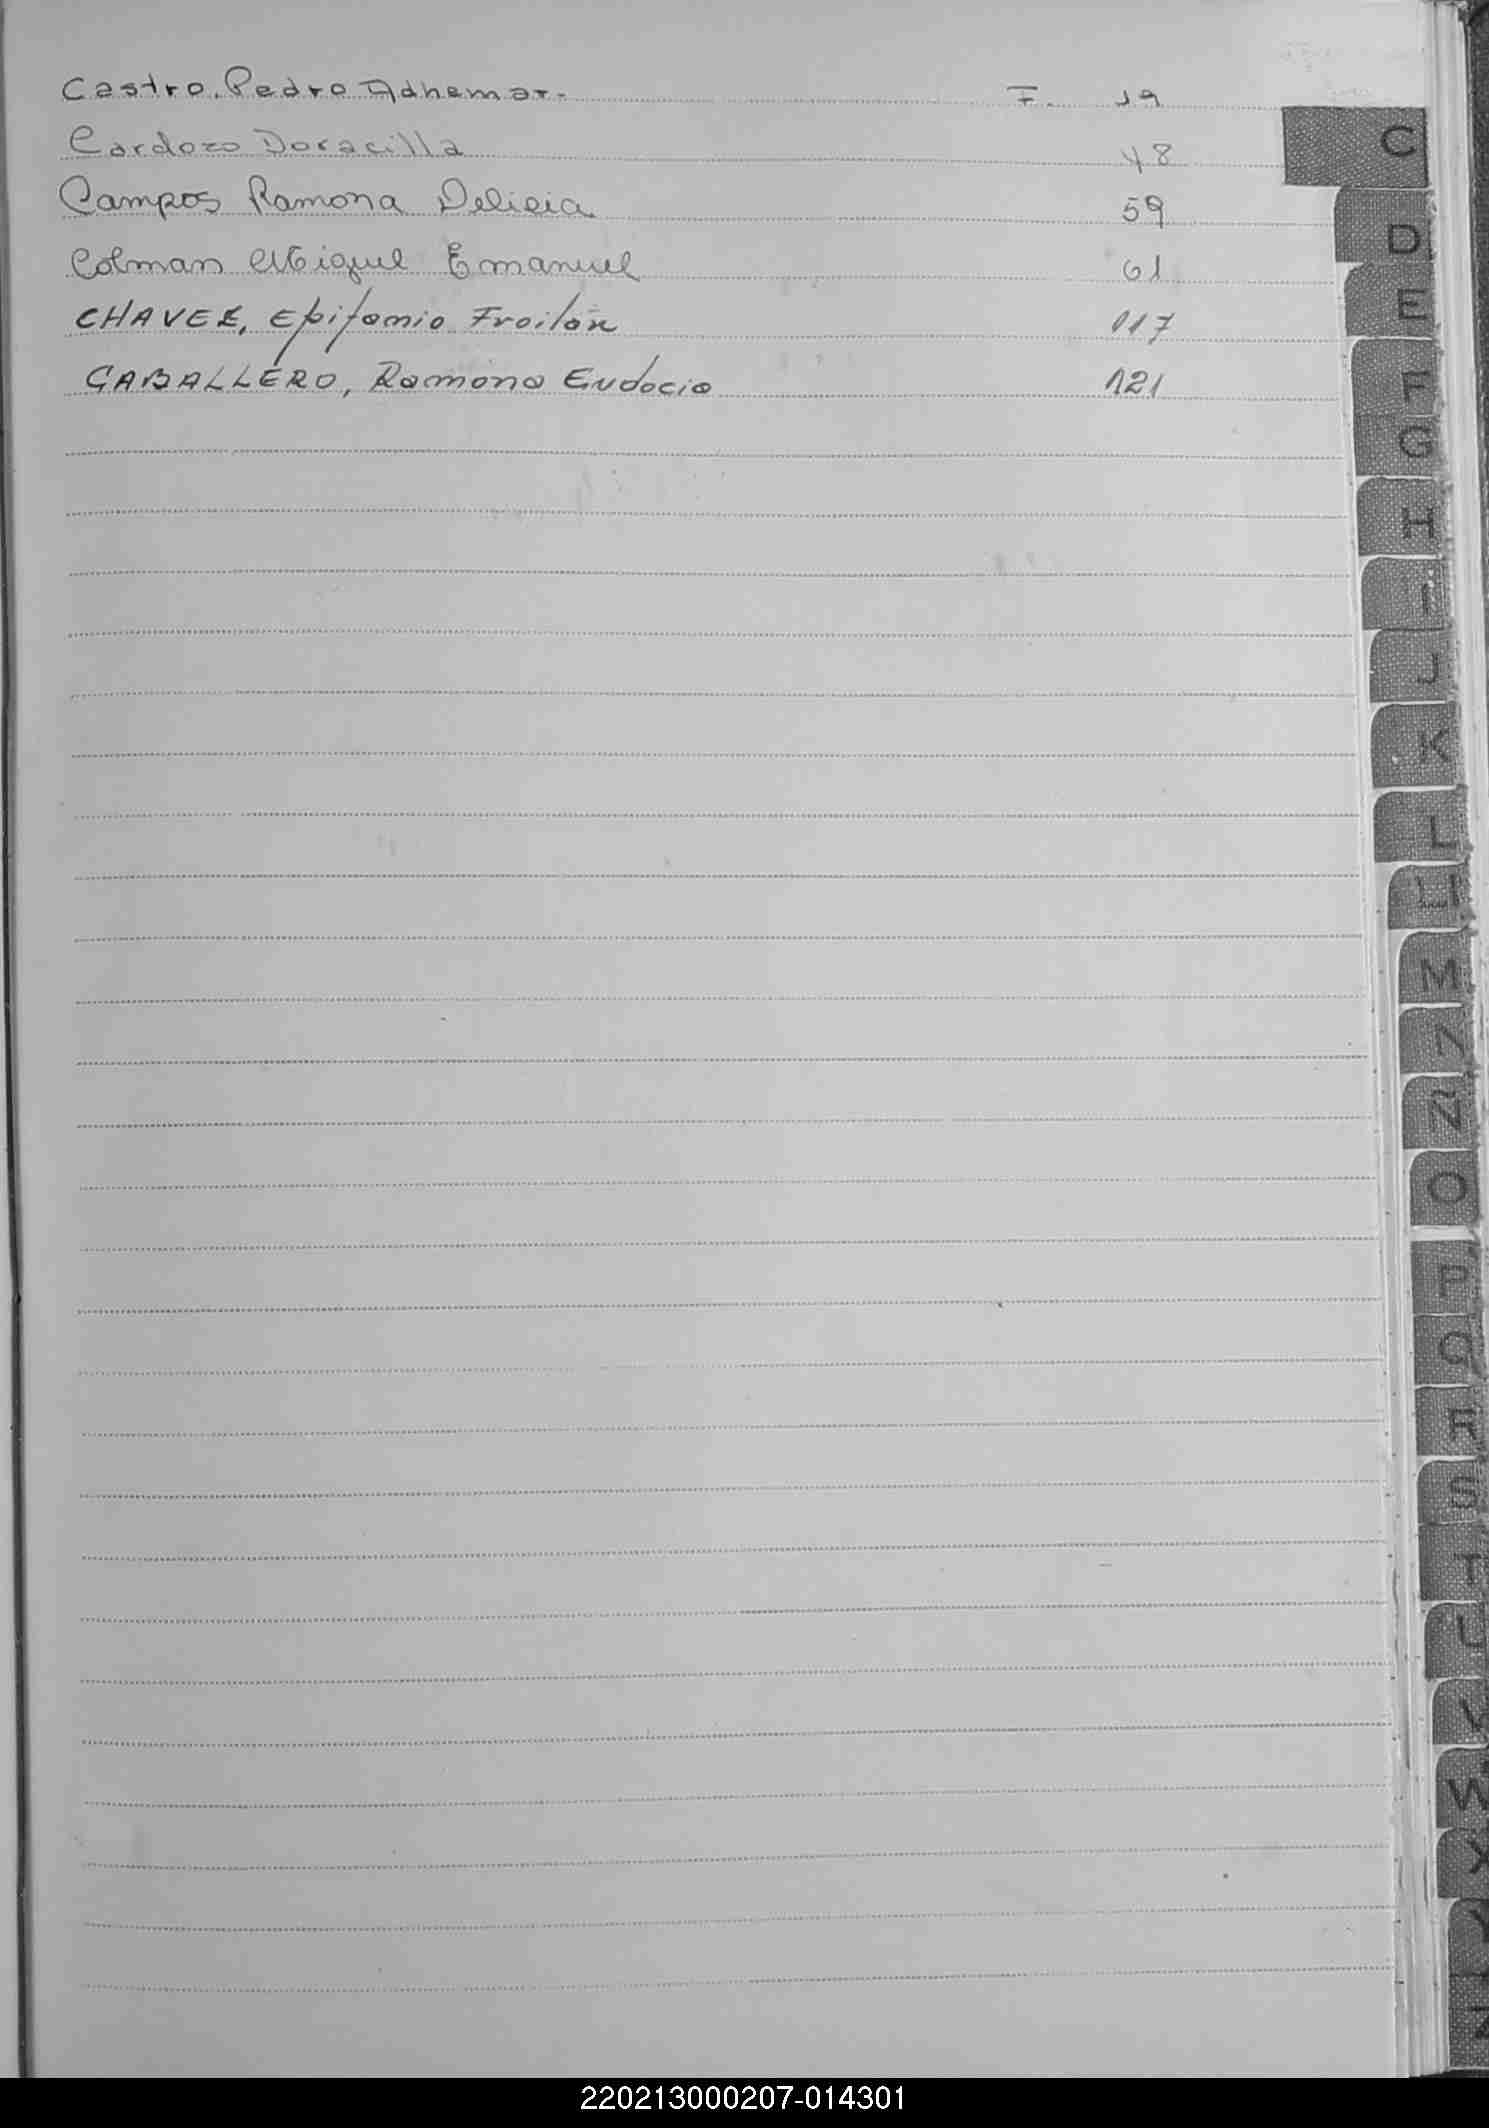 Castro, Pedro Adhemar.- F. 19
Cardozo Doracilla 48
Campos Ramona Delicia 59
Colman Miguel Emanuel 61
CHAVEZ, Epifanio Froilán 117
CABALLERO, Ramona Eudocia 121
C
D
E
F
G
H
I
J
K
L
LL
M
N
Ñ
O
P
Q
R
S
T
U
V
W
X
Y
Z
220213000207-014301